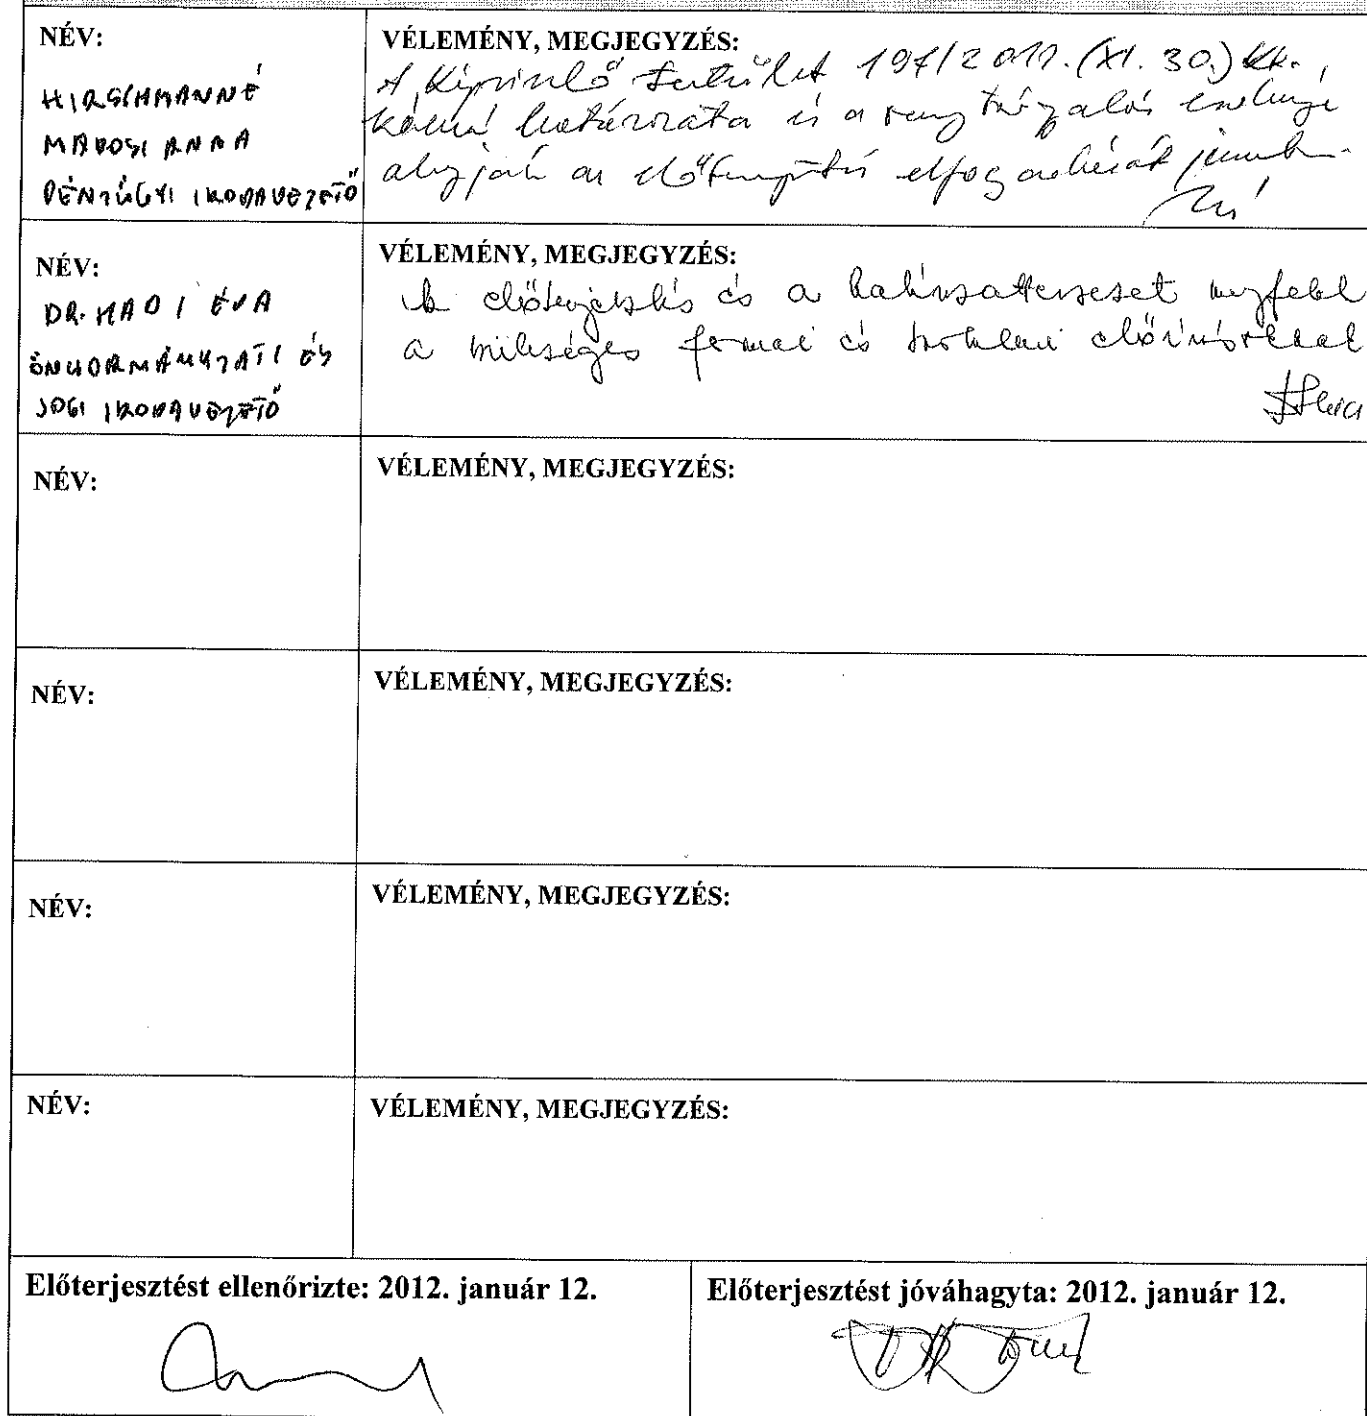 NÉV:
HIRSCHMANNÉ
MAROSI ANNA
PÉNZÜGYI IRODAVEZETŐ
VÉLEMÉNY, MEGJEGYZÉS:
A Képviselő testület 197/2011. (XI. 30.) Kt.
határozata és a
alapján az előterjesztés elfogadását
NÉV:
DR. HADI ÉVA
ÖNKORMÁNYZATI ÉS
JOGI IRODAVEZETŐ
VÉLEMÉNY, MEGJEGYZÉS:
Az előterjesztés és a határozattervezet megfelel
a szükséges formai és tartalmi előírásoknak
NÉV:
VÉLEMÉNY, MEGJEGYZÉS:
NÉV:
VÉLEMÉNY, MEGJEGYZÉS:
NÉV:
VÉLEMÉNY, MEGJEGYZÉS:
NÉV:
VÉLEMÉNY, MEGJEGYZÉS:
Előterjesztést ellenőrizte: 2012. január 12.
Előterjesztést jóváhagyta: 2012. január 12.